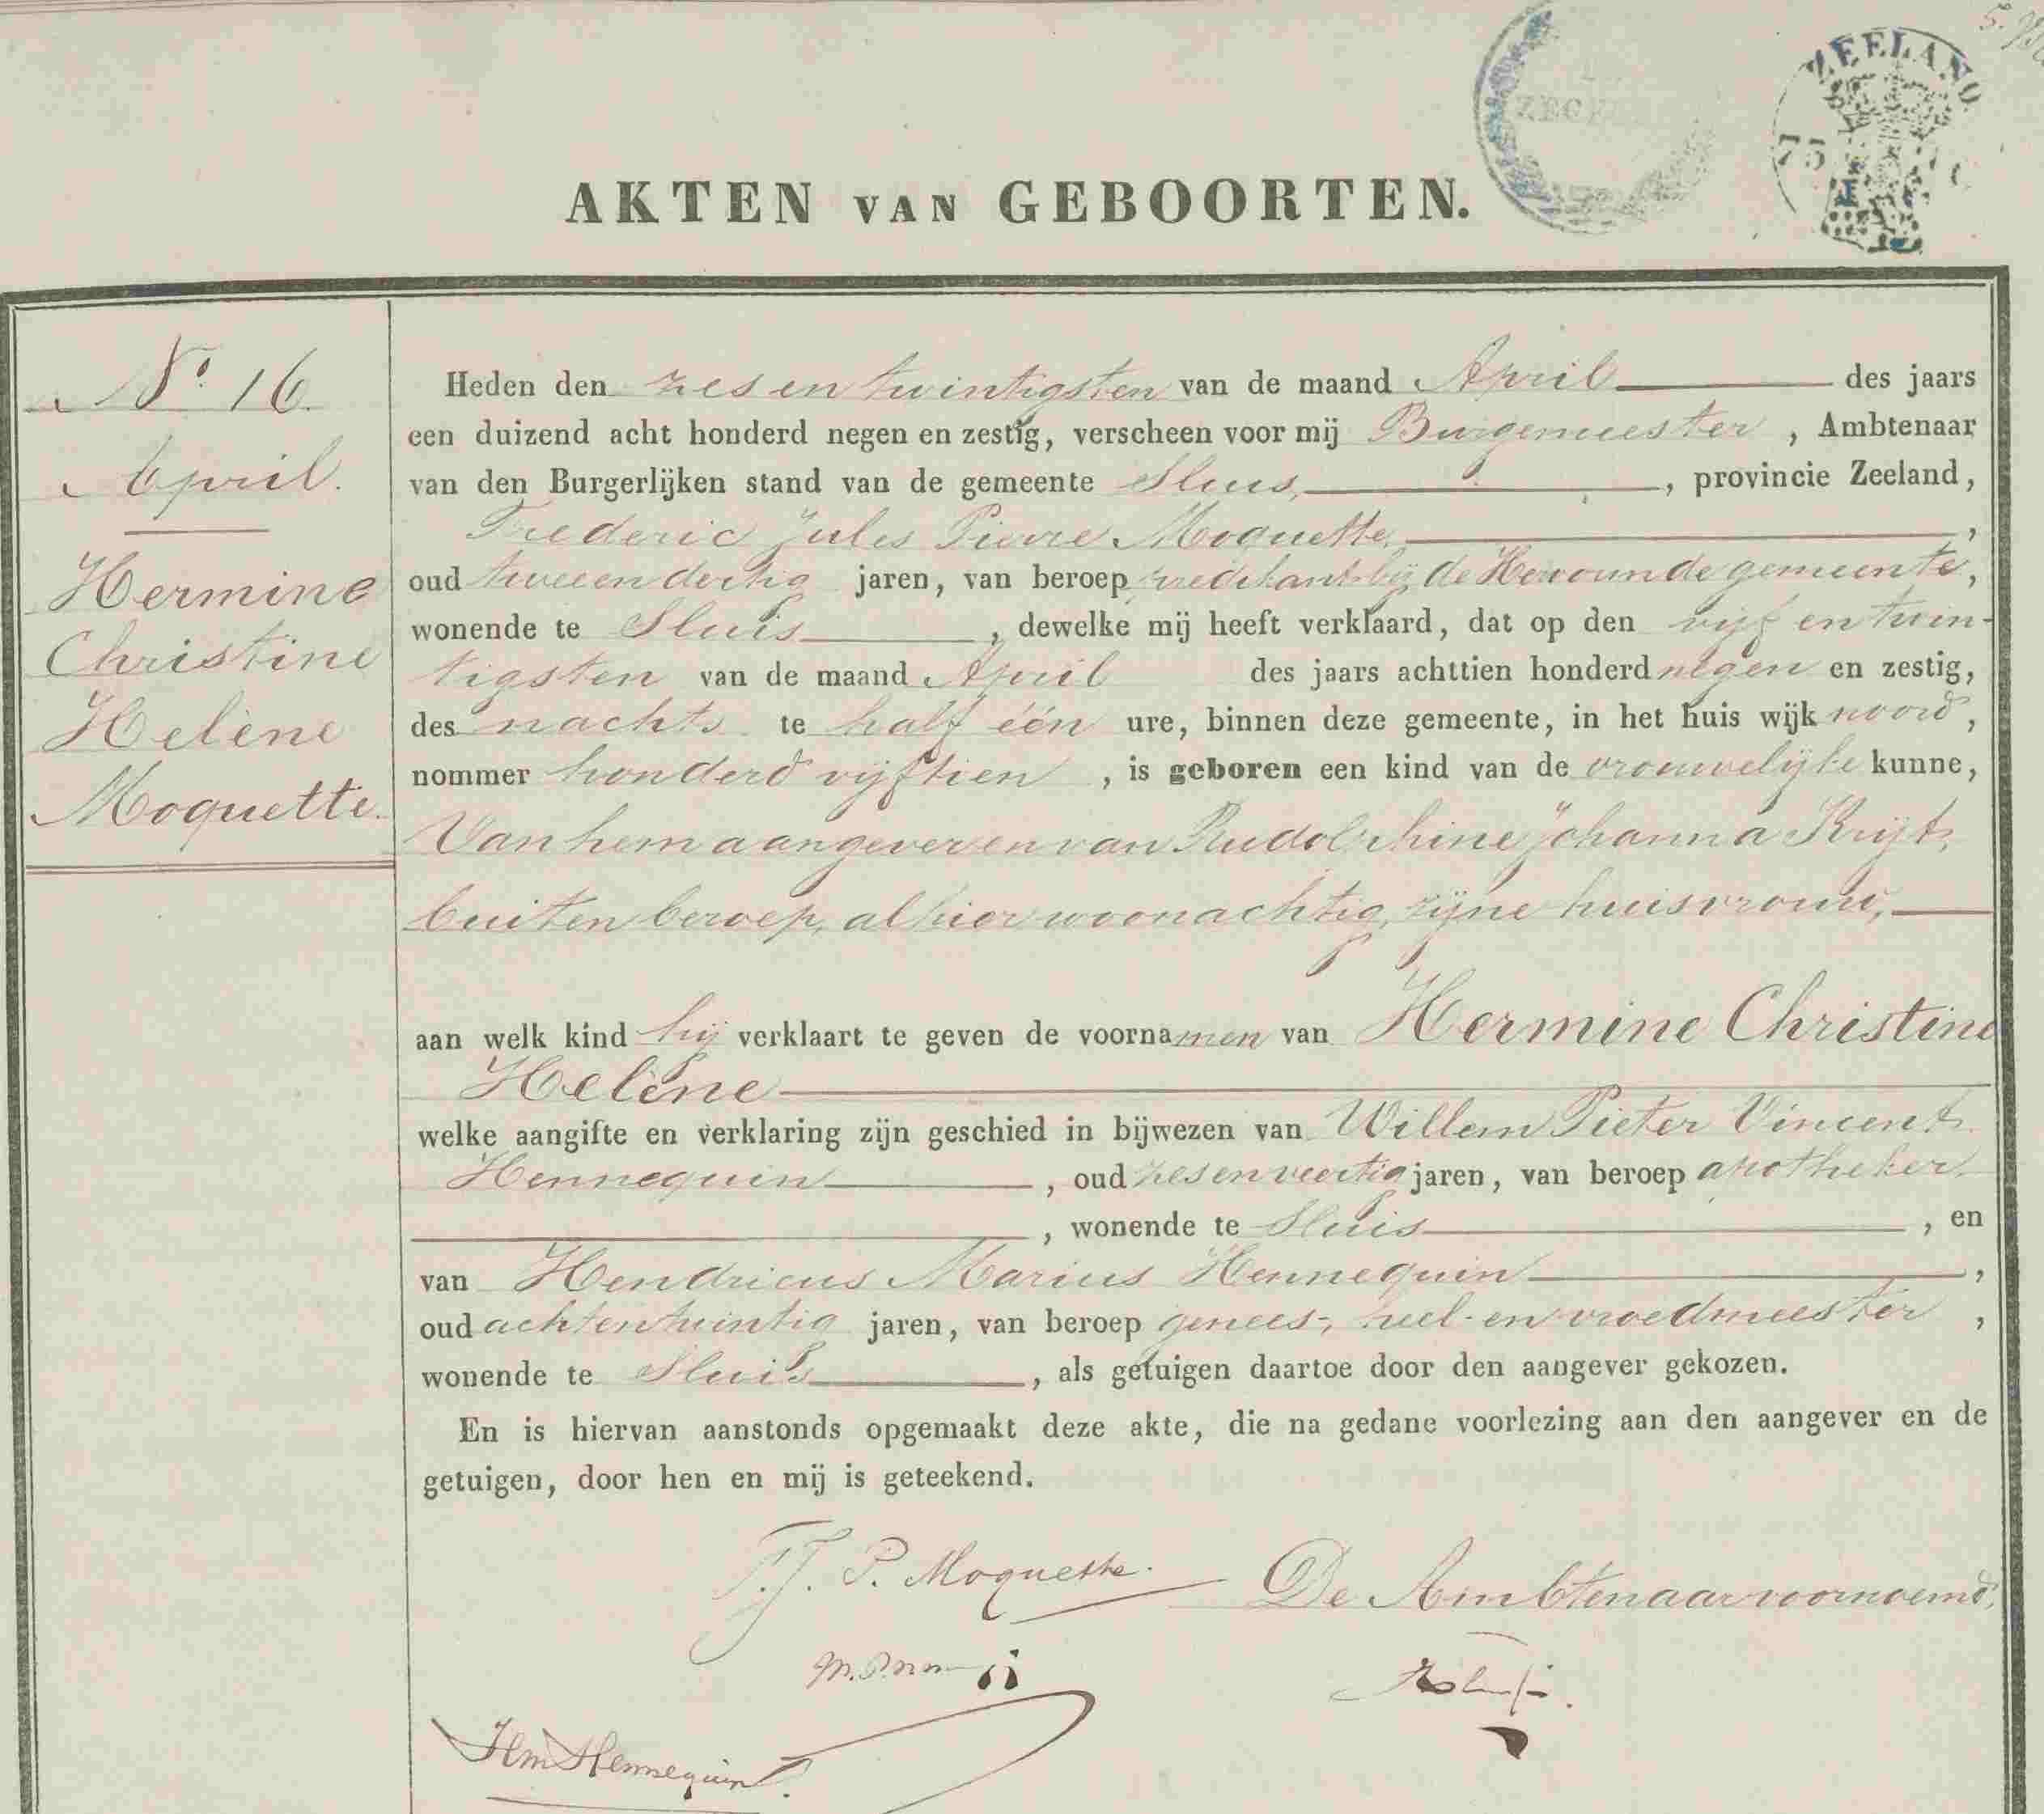 ZEELAND
75
AKTEN VAN GEBOORTEN.
N°. 16.
April.
Hermine
Christine
Helène
Moquette.
Heden den zes en twintigsten van de maand April des jaars
een duizend acht honderd negen en zestig, verscheen voor mij Burgemeester, Ambtenaar
van den Burgerlijken stand van de gemeente Sluis, provincie Zeeland,
Frederic Jules Pierre Moquette,
oud twee en dertig jaren, van beroep predikant bij de Hervormde gemeente,
wonende te Sluis, dewelke mij heeft verklaard, dat op den vijf en twin-
tigsten van de maand April des jaars achttien honderd negen en zestig,
des nachts te half één ure, binnen deze gemeente, in het huis wijk noord,
nommer honderd vijftien, is geboren een kind van de vrouwelijke kunne,
Van hem aangever en van Rudolphine Johanna Krijt,
buiten beroep, alhier woonachtig, zijne huisvrouw,
aan welk kind hij verklaart te geven de voornamen van Hermine Christine
Helène
welke aangifte en verklaring zijn geschied in bijwezen van Willem Pieter Vincent
Hennequin, oud zes en veertig jaren, van beroep apotheker,
, wonende te Sluis, en
van Hendricus Marius Hennequin,
oud acht en twintig jaren, van beroep genees-, heel- en vroedmeester,
wonende te Sluis, als getuigen daartoe door den aangever gekozen.
En is hiervan aanstonds opgemaakt deze akte, die na gedane voorlezing aan den aangever en de
getuigen, door hen en mij is geteekend.
F. J. P. Moquette.
De Ambtenaar voornoemd,
HM Hennequin